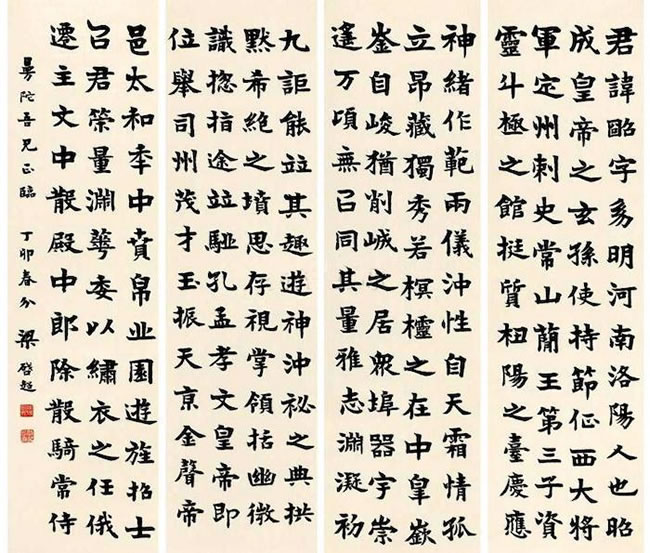 君諱昭字幼明河南洛陽人也昭
成皇帝之玄孫使持節征西大將
軍定州刺史常山蕑王第三子資
靈斗極之館挺質杻陽之臺慶應
神緒作範兩儀沖性自天霜情孤
立昂藏獨秀若榠櫨之在中皐嶔
崟自峻猶削峸之居衆埠器宇崇
邃万頃無㠯同其量雅志淵凝初
九詎能竝其趣遊神沖祕之典拱
默希絶之墳思存視掌領括幽微
識揔指途竝駈孔孟孝文皇帝即
位舉司州茂才玉振天京金聲帝
邑太和秊中賁帛丘園遊旌招士
㠯君榮量淵華委以繡衣之任俄
遷主文中散殿中郎除散騎常侍
曼陀吾兄正臨 丁卯春分 梁啓超